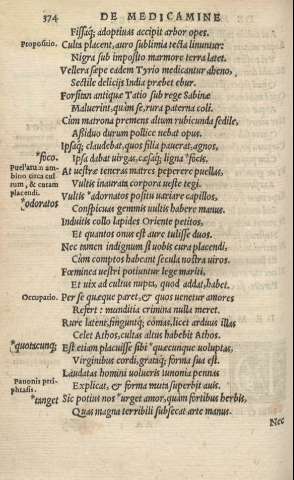 374 DE MEDICAMINE
Fissaq́; adoptiuas accipit arbor opes.
Propositio. Culta placent, auro sublimia tecta linuntur:
Nigra sub imposito marmore terra latet.
Vellera sæpe eadem Tyrio medicantur aheno,
Sectile delicijs India præbet ebur.
Forsitan antiquæ Tatio sub rege Sabinæ
Maluerint, quàm se, rura paterna coli.
Cùm matrona premens altum rubicunda sedile,
Aßiduo durum pollice nebat opus.
Ipsaq́; claudebat, quos filia pauerat, agnos,
*foco. Ipsa dabat uirgas, cæsaq́; ligna *focis.
Puellarum am-
bitio circa cul
tum, & curam
placendi.
At uestræ teneras matres peperere puellas,
Vultis inaurata corpora ueste tegi.
*odoratos Vultis *adornatos positu uariare capillos,
Conspicuas gemmis uultis habere manus.
Induitis collo lapides Oriente petitos,
Et quantos onus est aure tulisse duos.
Nec tamen indignum si uobis cura placendi,
Cùm comptos habeant secula nostra uiros.
Fœminea uestri potiuntur lege mariti,
Et uix ad cultus nupta, quod addat, habet.
Occupatio. Per se quæque paret, & quos uenetur amores
Refert: munditia crimina nulla meret.
Rure latent, finguntq́; comas, licet arduus illas
Celet Athos, cultas altus habebit Athos.
*quotcunq; Est etiam placuisse sibi *quæcunque uoluptas,
Virginibus cordi, grataq́; forma sua est.
Laudatas homini uolucris Iunonia pennas
Pauonis peri-
phrasis.
Explicat, & forma muta superbit auis.
*tanget Sic potius nos *urget amor, quàm fortibus herbis,
Quas maga terribili subsecat arte manus.
Nec